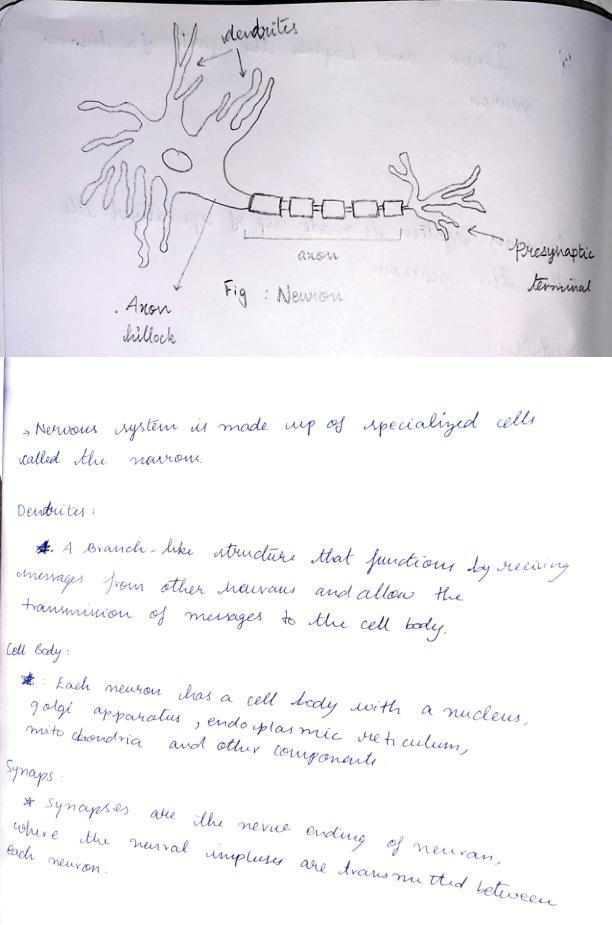 dendrites
axon
presynaptic
terminal
Fig : Neuron
Axon
hillock
→ Nervous system is made up of specialized cells
called the narrow.
Dendrites :
*. A Branch-like structure that functions by reciving
messages from other neurans and allow the
transmission of messages to the cell body.
Cell Body :
* : Each neuron has a cell body with a nucleus,
golgi apparatus , endoplasmic reticulum,
mitochondria and other components.
Synaps :
* Synapses are the nerve ending of neuran,
where the neural impluses are transmitted between
each neuron.